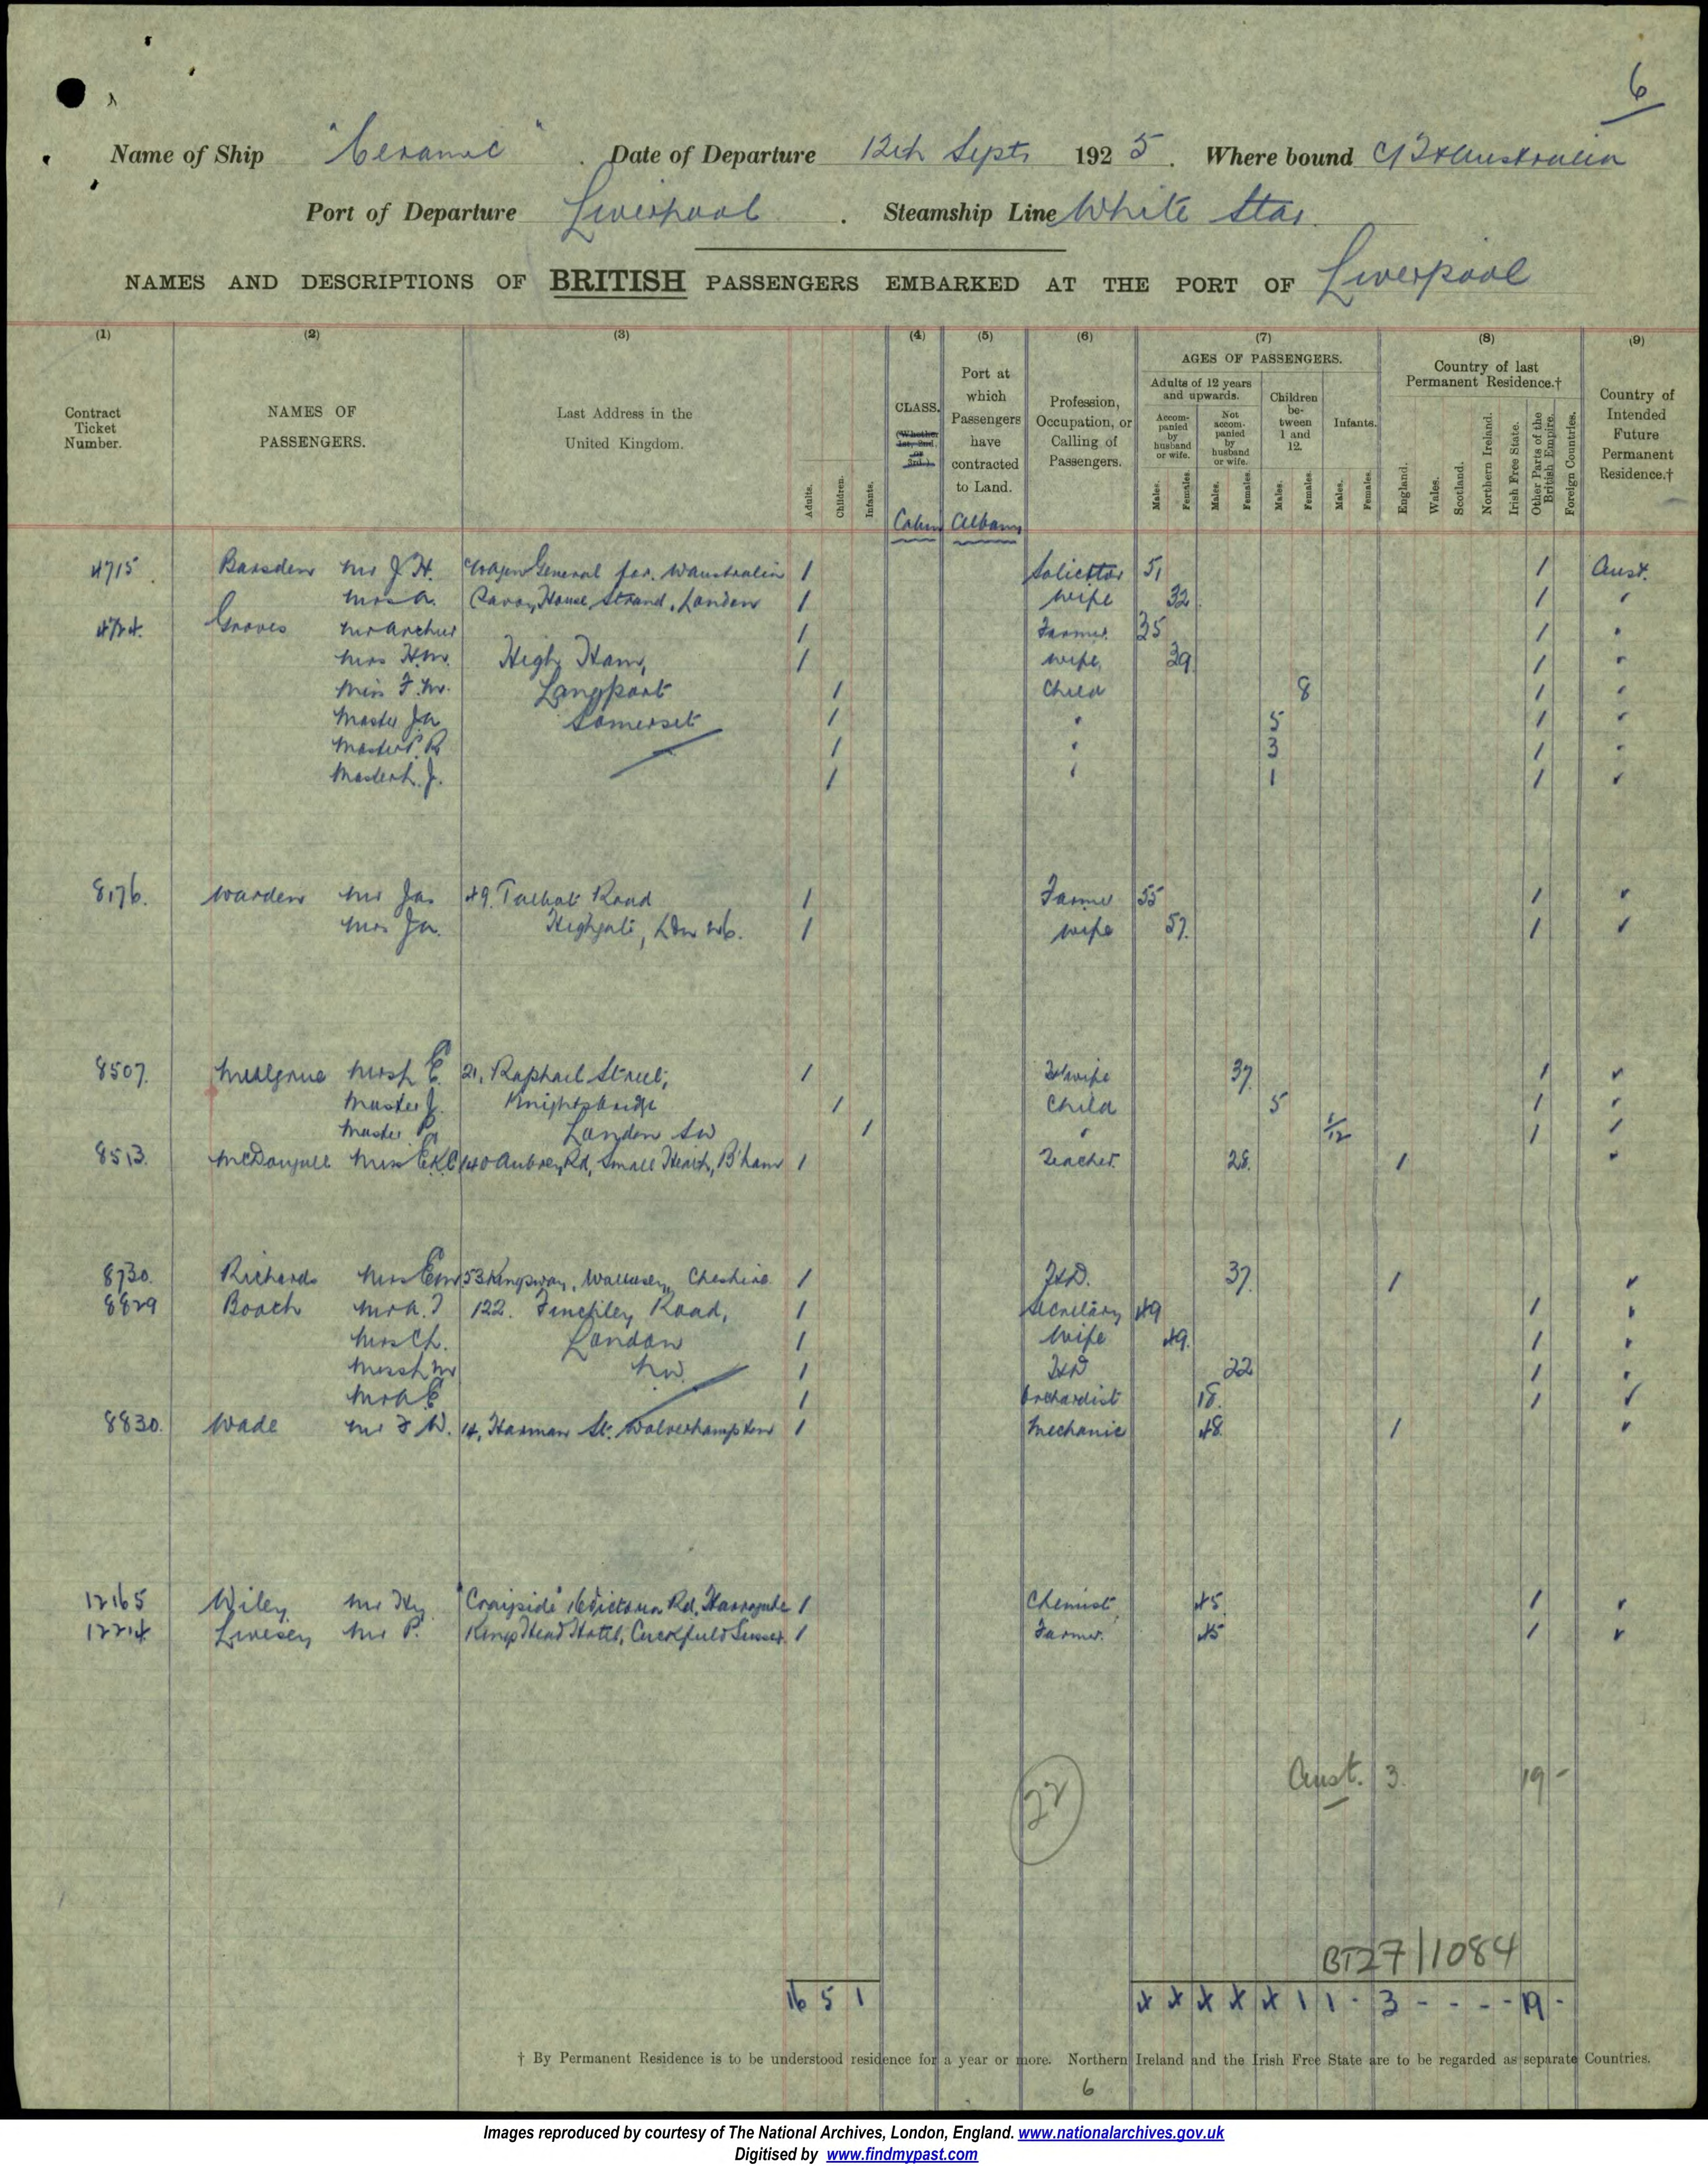 6
Name of Ship "Ceramic". Date of Departure 12th Sept. 1925. Where bound Australia
Port of Departure Liverpool. Steamship Line White Star.
NAMES AND DESCRIPTIONS OF BRITISH PASSENGERS EMBARKED AT THE PORT OF Liverpool
(1) (2) (3) (4) (5) (6) (7) (8) (9)
Contract Ticket Number.
NAMES OF PASSENGERS.
Last Address in the United Kingdom.
Adults. Children. Infants.
CLASS. (Whether 1st, 2nd, or 3rd.)
Cabin
Port at which Passengers have contracted to Land.
Albany
Profession, Occupation, or Calling of Passengers.
AGES OF PASSENGERS.
Adults of 12 years and upwards.
Accompanied by husband or wife.
Not accompanied by husband or wife.
Children between 1 and 12.
Infants.
Males. Females. Males. Females. Males. Females. Males. Females.
Country of last Permanent Residence.†
England. Wales. Scotland. Northern Ireland. Irish Free State. Other Parts of the British Empire. Foreign Countries.
Country of Intended Future Permanent Residence.†
4715. Barsden Mr J. H. General for. W Australia 1 Solicitor 51 1 Aust.
Mrs A. Savoy House, Strand, London 1 Wife 32 1 "
Groves Mr Arthur 1 Farmer 35 1 "
Mrs H.M. High Ham, 1 Wife 39 1 "
Miss F. M. Langport 1 Child 8 1 "
Master Ja Somerset 1 " 5 1 "
Master P. R 1 " 3 1 "
Master J. 1 " 1 1 "
8176. Warden Mr Jas 49. Talbot Road 1 Farmer 55 1 "
Mrs Ja. Highgate, Ldn N6. 1 Wife 57. 1 "
8507. Musgrave Mrs E. 21, Raphael Street, 1 H'wife 37 1 "
Master J. Knightsbridge 1 Child 5 1 "
Master P. London SW 1 " 1/12 1 "
8513. McDougall Miss E.K.C 140 Aubrey Rd, Small Heath, B'ham 1 Teacher. 28. 1 "
8730. Richards Mrs Em 53 Kingsway, Wallasey, Cheshire 1 H.D. 37. 1 "
8829 Booth Mr A. T 122. Finchley Road, 1 Secretary 49 1 "
Mrs C.h. London 1 Wife 49. 1 "
Miss h M N.W. 1 H.D 22 1 "
Mr A. E 1 Orchardist 18. 1 "
8830. Wade Mr F W. 14, Harman St. Wolverhampton 1 Mechanic 48 1 "
12165 Wiley Mr Hy "Craigside" 16 Victoria Rd, Harrogate 1 Chemist 45. 1 "
12214 Livesey Mr P. Kings Head Hotel, Cuckfield Sussex. 1 Farmer. 45 1 "
22
Aust. 3. 19 -
BT27/1084
16 5 1 4 4 4 4 4 1 1 - 3 - - - - 19 -
† By Permanent Residence is to be understood residence for a year or more. Northern Ireland and the Irish Free State are to be regarded as separate Countries.
6
Images reproduced by courtesy of The National Archives, London, England. www.nationalarchives.gov.uk
Digitised by www.findmypast.com